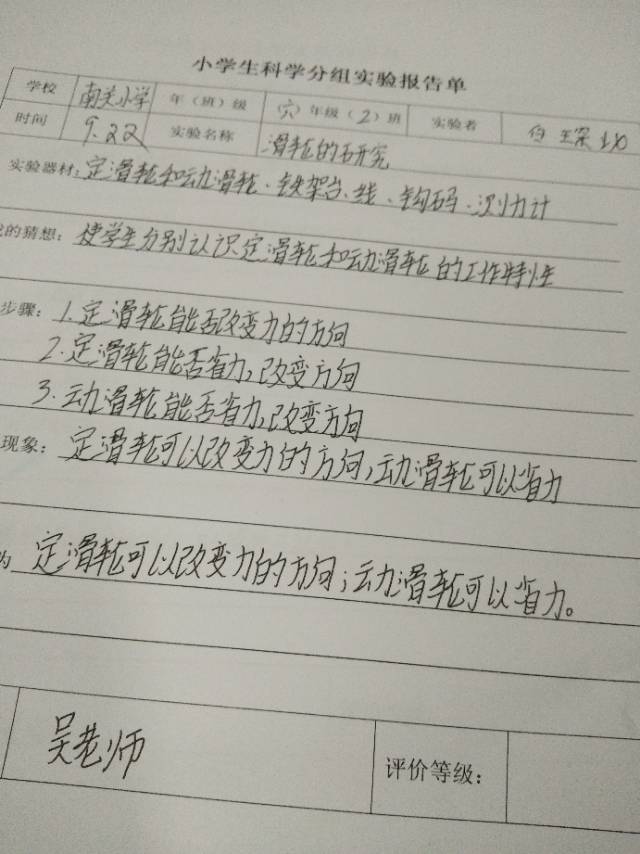 小学生科学分组实验报告单
学校 南关小学 年（班）级 （六）年级（2）班 实验者
时间 9.22 实验名称 滑轮的研究
实验器材：定滑轮和动滑轮、铁架台、线、钩码、测力计
的猜想：使学生分别认识定滑轮和动滑轮的工作特性
步骤：1.定滑轮能否改变力的方向
2.定滑轮能否省力，改变方向
3.动滑轮能否省力，改变方向
现象：定滑轮可以改变力的方向，动滑轮可以省力
为 定滑轮可以改变力的方向；动滑轮可以省力。
吴老师 评价等级：